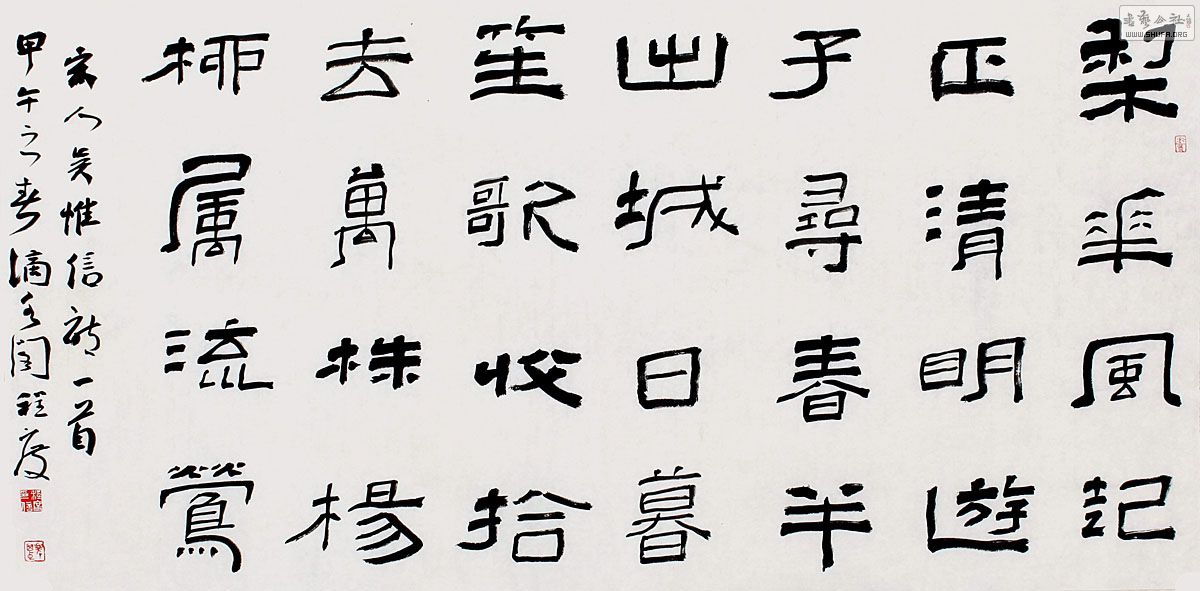 梨華風起
正清明遊
子尋春半
出城日暮
笙歌收拾
去萬株楊
柳属流鶯
宋人吴惟信詩一首
甲午之春滴水閣程度
WWW.SHUFA.ORG